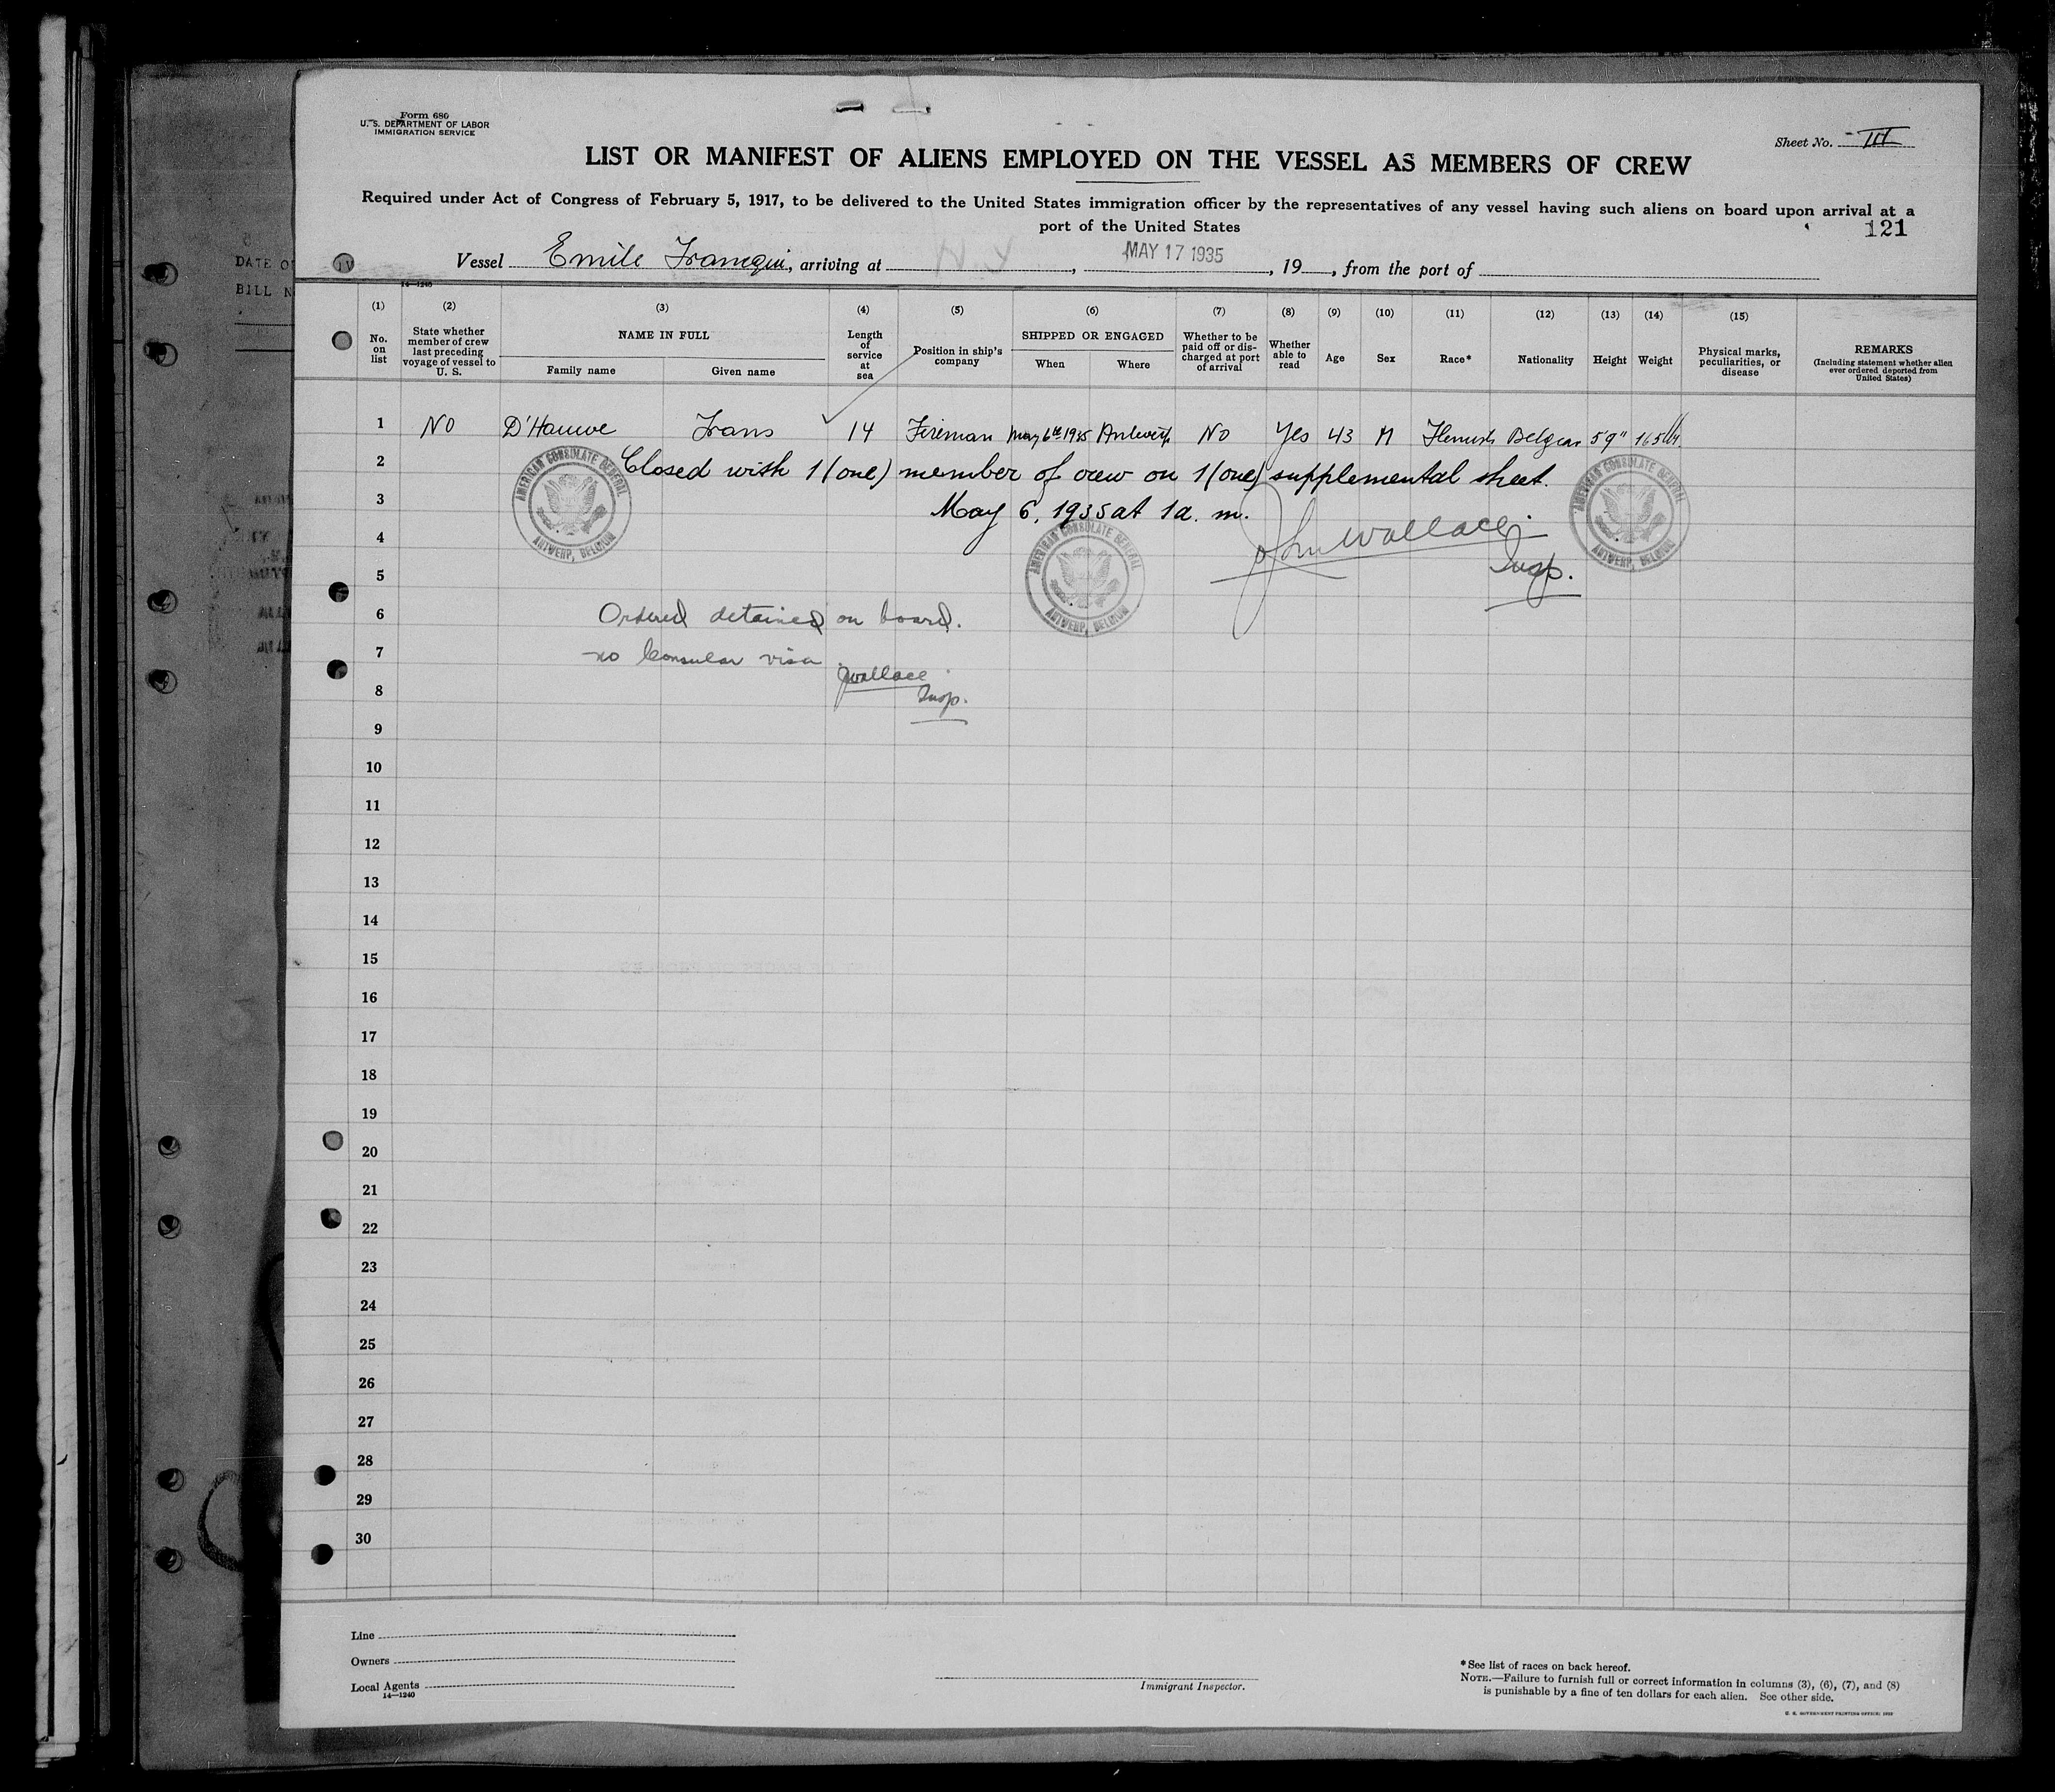 Form 680
U. S. DEPARTMENT OF LABOR
IMMIGRATION SERVICE
Sheet No. III
LIST OR MANIFEST OF ALIENS EMPLOYED ON THE VESSEL AS MEMBERS OF CREW
Required under Act of Congress of February 5, 1917, to be delivered to the United States immigration officer by the representatives of any vessel having such aliens on board upon arrival at a
port of the United States
121
Vessel Emile Francqui, arriving at N.Y, MAY 17 1935, 19, from the port of
14—1240
(1) (2) (3) (4) (5) (6) (7) (8) (9) (10) (11) (12) (13) (14) (15)
No. on list
State whether member of crew last preceding voyage of vessel to U. S.
NAME IN FULL
Family name Given name
Length of service at sea
Position in ship's company
SHIPPED OR ENGAGED
When Where
Whether to be paid off or discharged at port of arrival
Whether able to read
Age
Sex
Race*
Nationality
Height
Weight
Physical marks, peculiarities, or disease
REMARKS
(Including statement whether alien ever ordered deported from United States)
1 NO D'Hauwe Frans 14 Fireman May 6th 1935 Antwerp No Yes 43 M Flemish Belgian 5'9" 165 lbs
2 Closed with 1 (one) member of crew on 1 (one) supplemental sheet.
3 May 6, 1935 at 1 a. m.
AMERICAN CONSULATE GENERAL
ANTWERP, BELGIUM
AMERICAN CONSULATE GENERAL
ANTWERP, BELGIUM
AMERICAN CONSULATE GENERAL
ANTWERP, BELGIUM
4 John Wallace
5 Insp.
6 Ordered detained on board.
7 no Consular visa
JWallace
8 Insp.
9
10
11
12
13
14
15
16
17
18
19
20
21
22
23
24
25
26
27
28
29
30
Line
Owners
Local Agents
14—1240
Immigrant Inspector.
*See list of races on back hereof.
NOTE.—Failure to furnish full or correct information in columns (3), (6), (7), and (8)
is punishable by a fine of ten dollars for each alien. See other side.
U. S. GOVERNMENT PRINTING OFFICE: